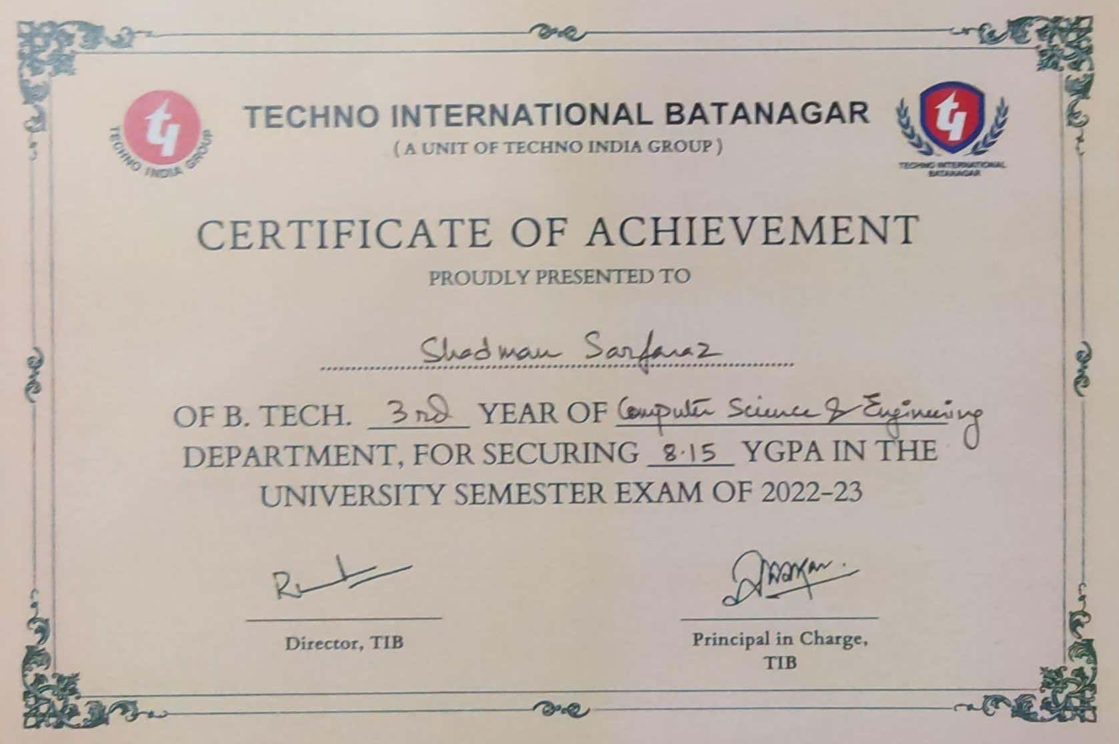 TECHNO INTERNATIONAL BATANAGAR
( A UNIT OF TECHNO INDIA GROUP )
TECHNO INDIA GROUP
TECHNO INTERNATIONAL
BATANAGAR
CERTIFICATE OF ACHIEVEMENT
PROUDLY PRESENTED TO
Shadman Sarfaraz
OF B. TECH. 3rd YEAR OF Computer Science & Engineering
DEPARTMENT, FOR SECURING 8.15 YGPA IN THE
UNIVERSITY SEMESTER EXAM OF 2022-23
Director, TIB
Principal in Charge,
TIB